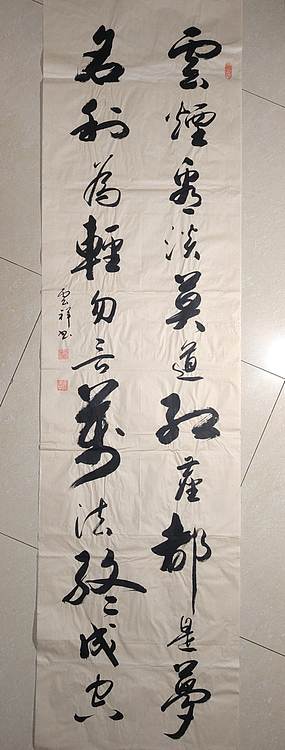 雲煙看淡莫道紅塵都是夢
名利為輕勿言萬法終成空
雲祥书